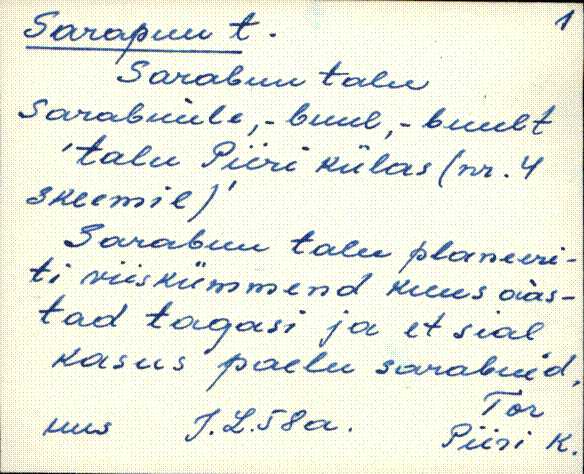 1
Sarapuu t.
Sarabuu talu
Sarabuule, -buul, -buult
'talu Piiri külas (nr. 4
skeemil)'
Sarabuu talu planeeri-
ti viiskümmend kuus aas-
tad tagasi ja et sial
kasus paelu sarabuid,
Tor
uus J.L. 58 a. Piiri k.